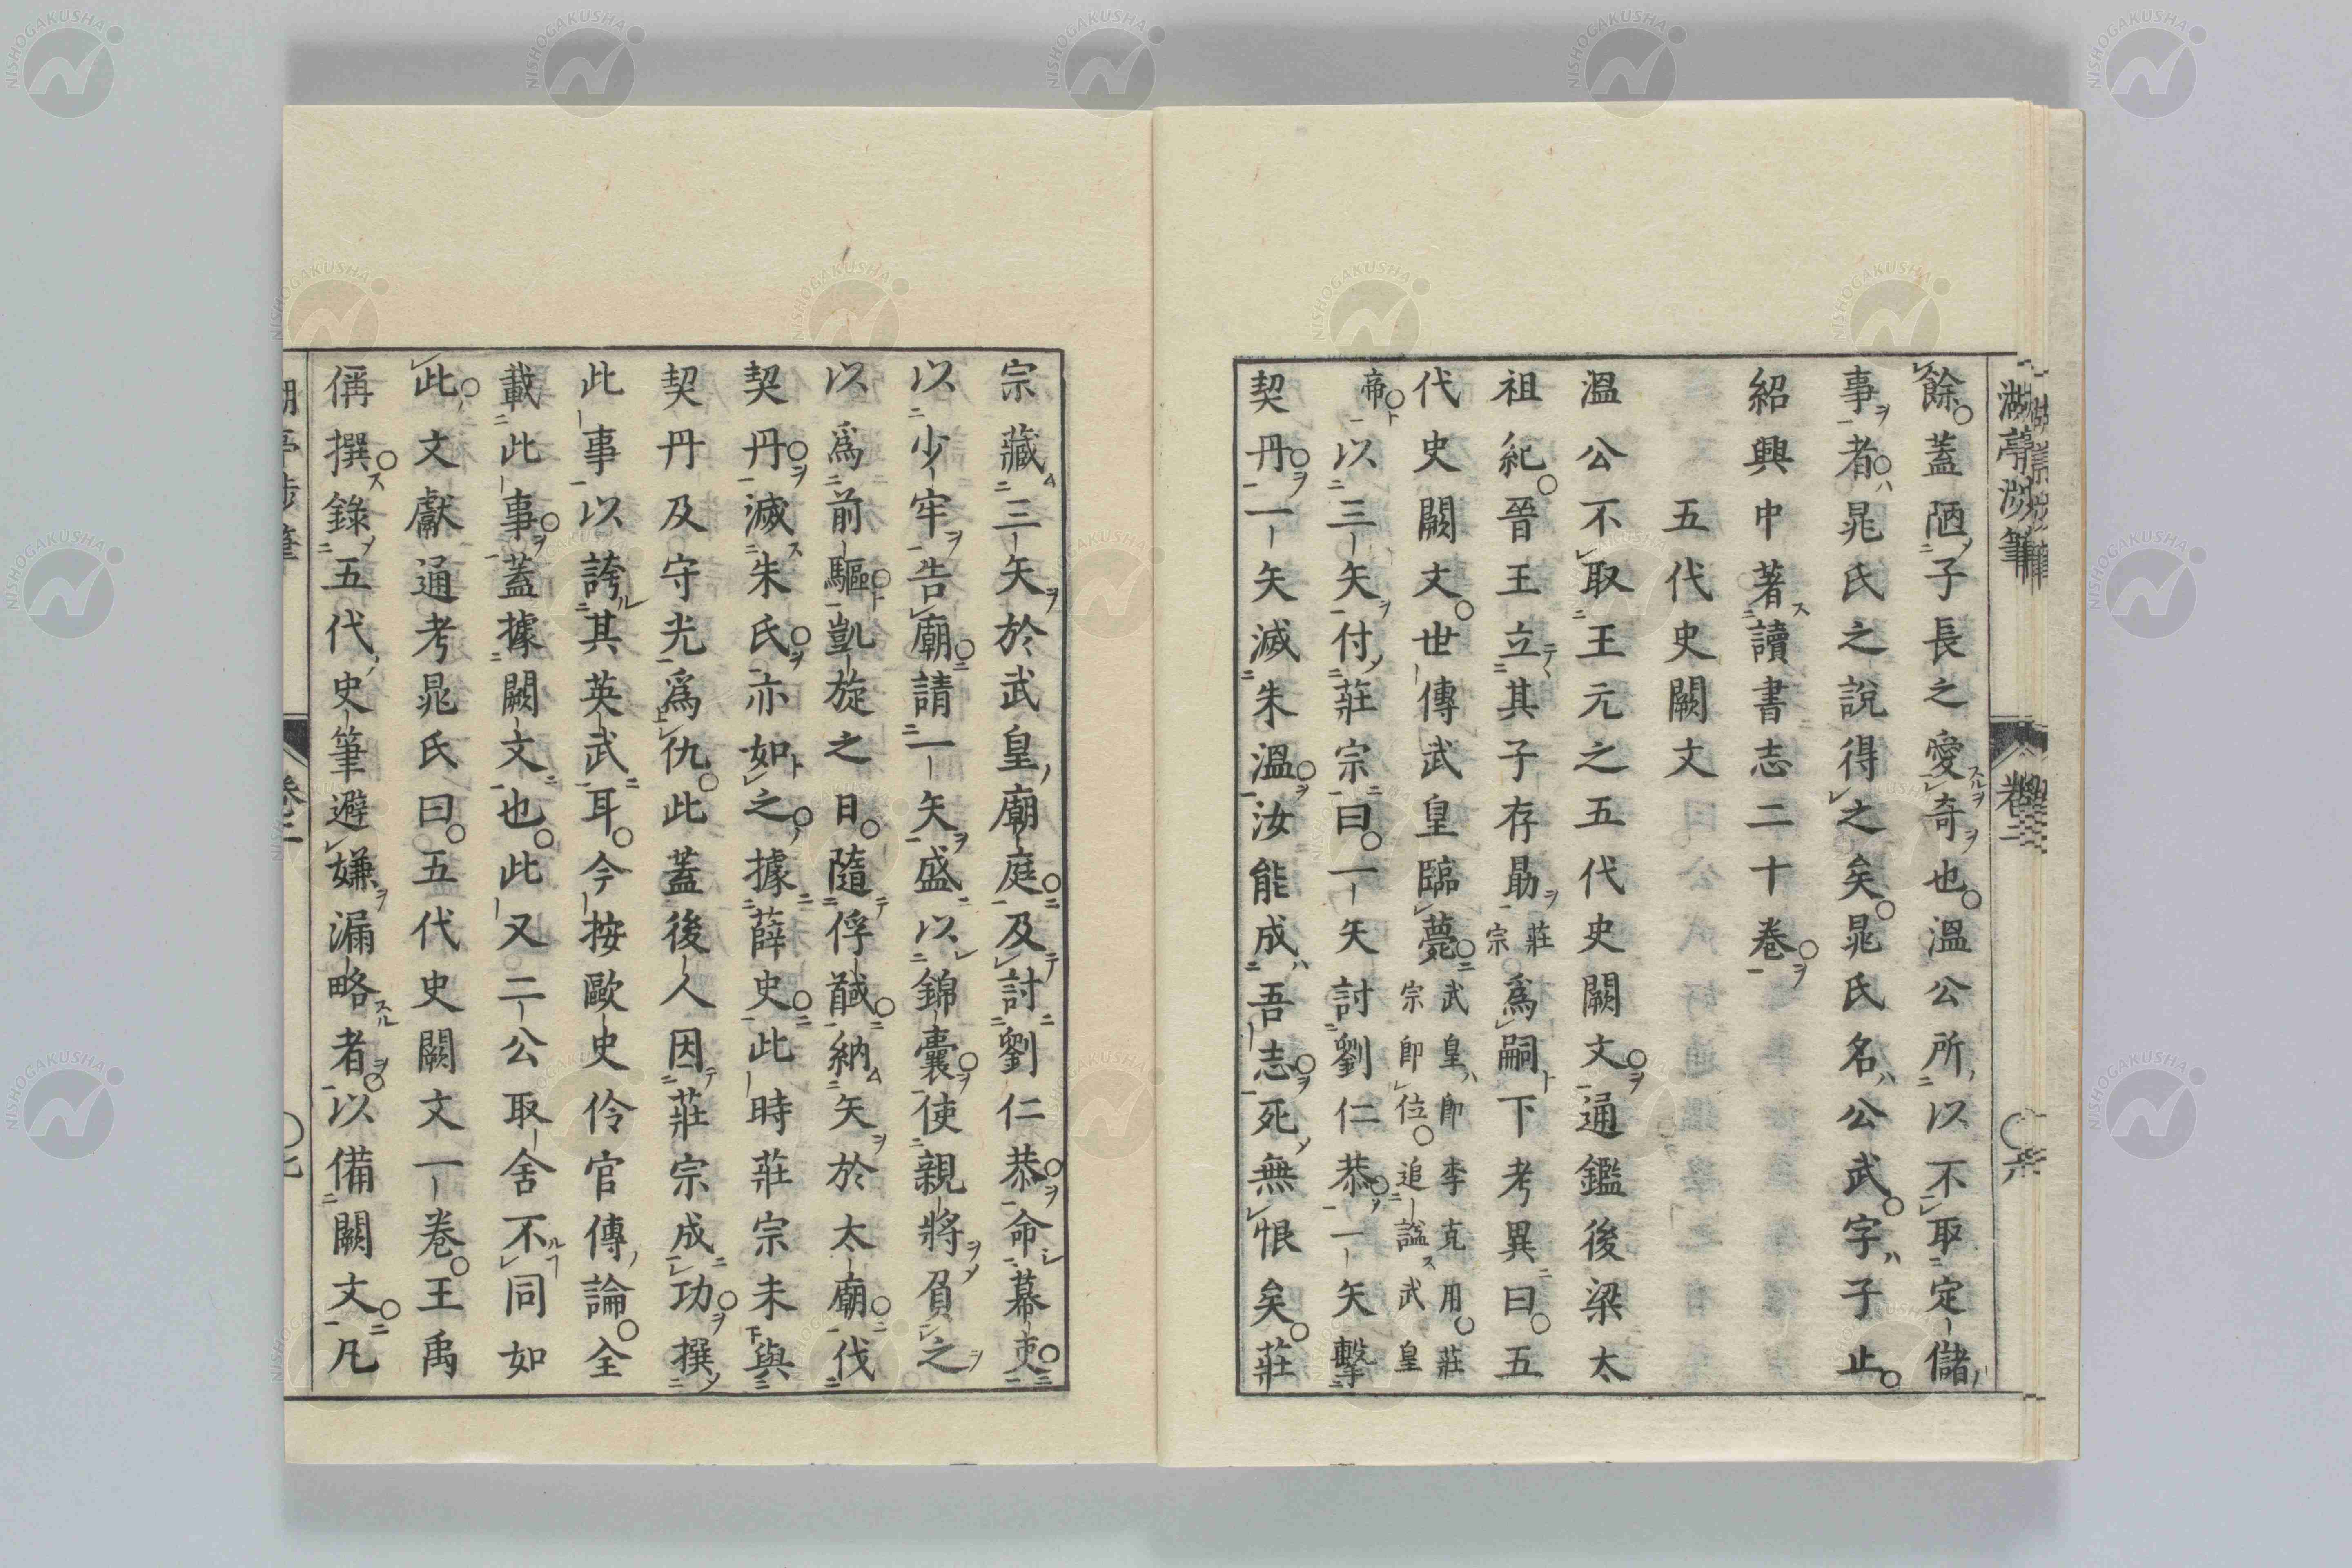 湖亭渉筆 卷二 〇六
餘蓋陋子長之愛奇也溫公所以不取定儲
事者晁氏之說得之矣晁氏名公武字子止
紹興中著讀書志二十卷
五代史闕文
溫公不取王元之五代史闕文通鑑後梁太
祖紀晉王立其子存勗莊宗爲嗣下考異曰五
代史闕文世傳武皇臨薨武皇即李克用莊宗即位追謚武皇
帝以三矢付莊宗曰一矢討劉仁恭一矢擊
契丹一矢滅朱溫汝能成吾志死無恨矣莊
宗藏三矢於武皇廟庭及討劉仁恭命幕吏
以少牢告廟請一矢盛以錦囊使親將負之
以爲前驅凱旋之日隨俘馘納矢於太廟伐
契丹滅朱氏亦如之據薛史此時莊宗未與
契丹及守光爲仇此蓋後人因莊宗成功撰
此事以誇其英武耳今按歐史伶官傳論全
載此事蓋據闕文也此又二公取舍不同如
此文獻通考晁氏曰五代史闕文一卷王禹
偁撰錄五代史筆避嫌漏略者以備闕文凡
NISHOGAKUSHA